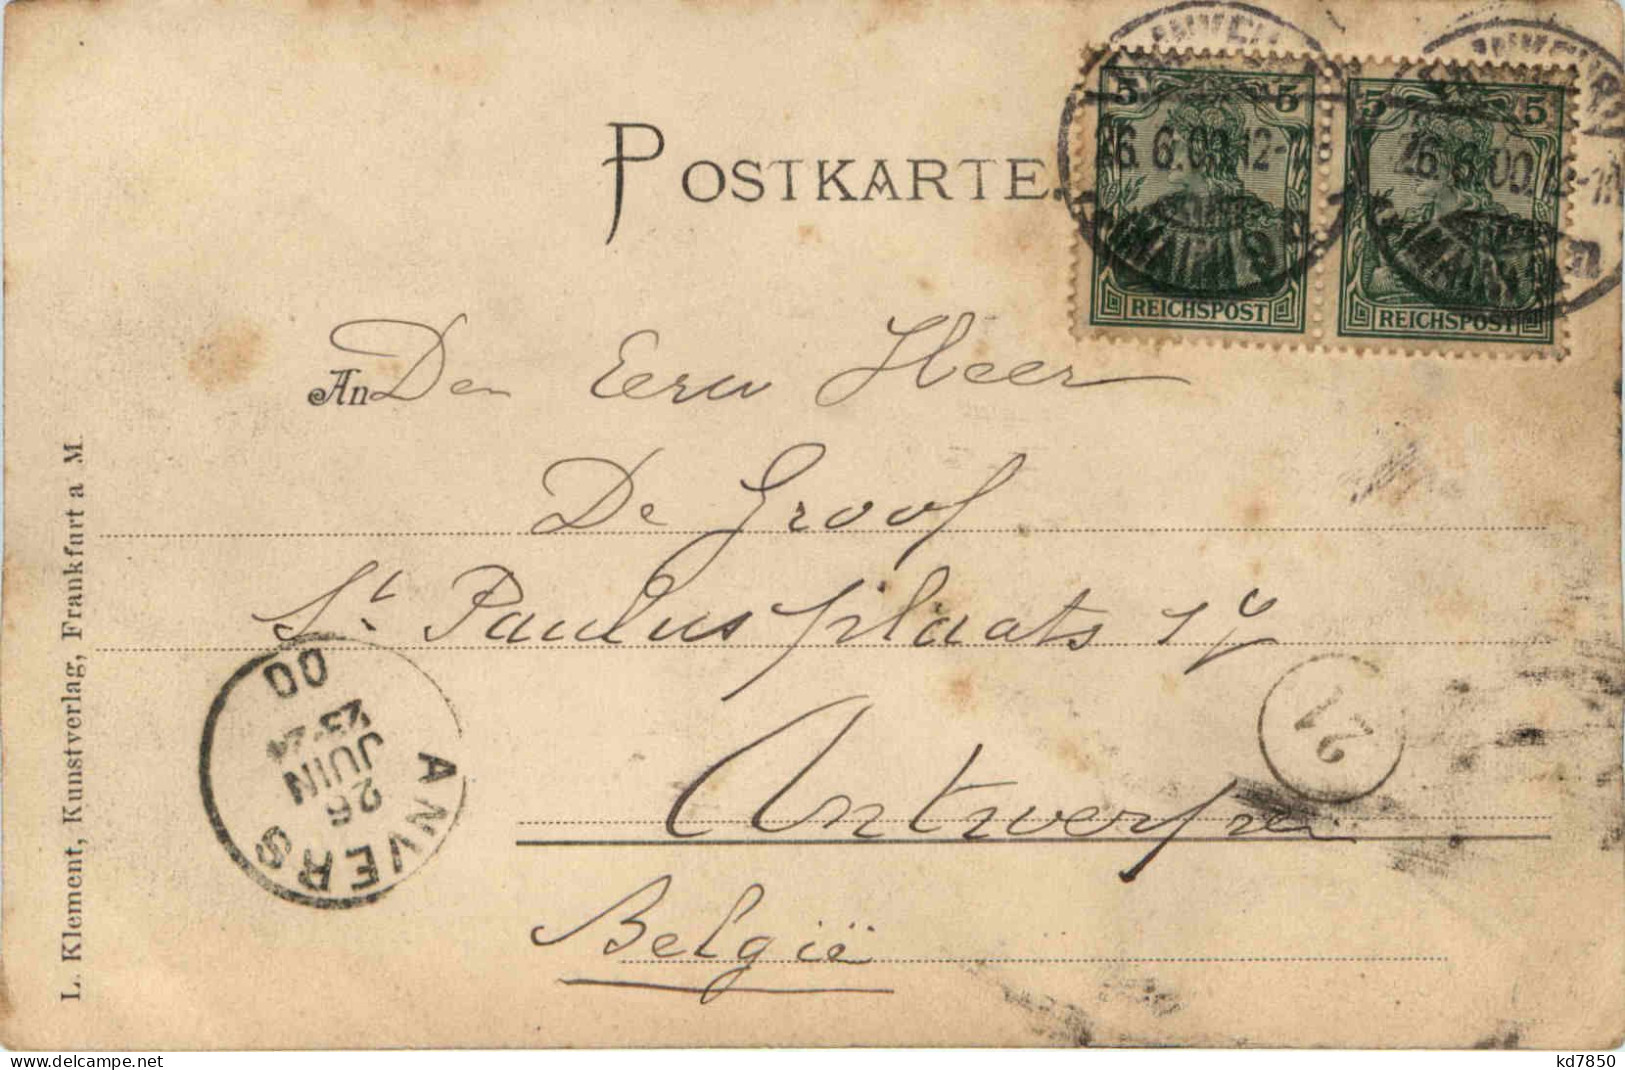 POSTKARTE.
5 5
5 5
26.6.00.12-1N
26.6.00.12-1N
REICHSPOST
REICHSPOST
An Den Eerw Heer
De Groof
St. Paulusplaats 17
Antwerpen
België
ANVERS
26
JUIN
23-24
00
21
L. Klement, Kunstverlag, Frankfurt a M.
www.delcampe.net
kd7850